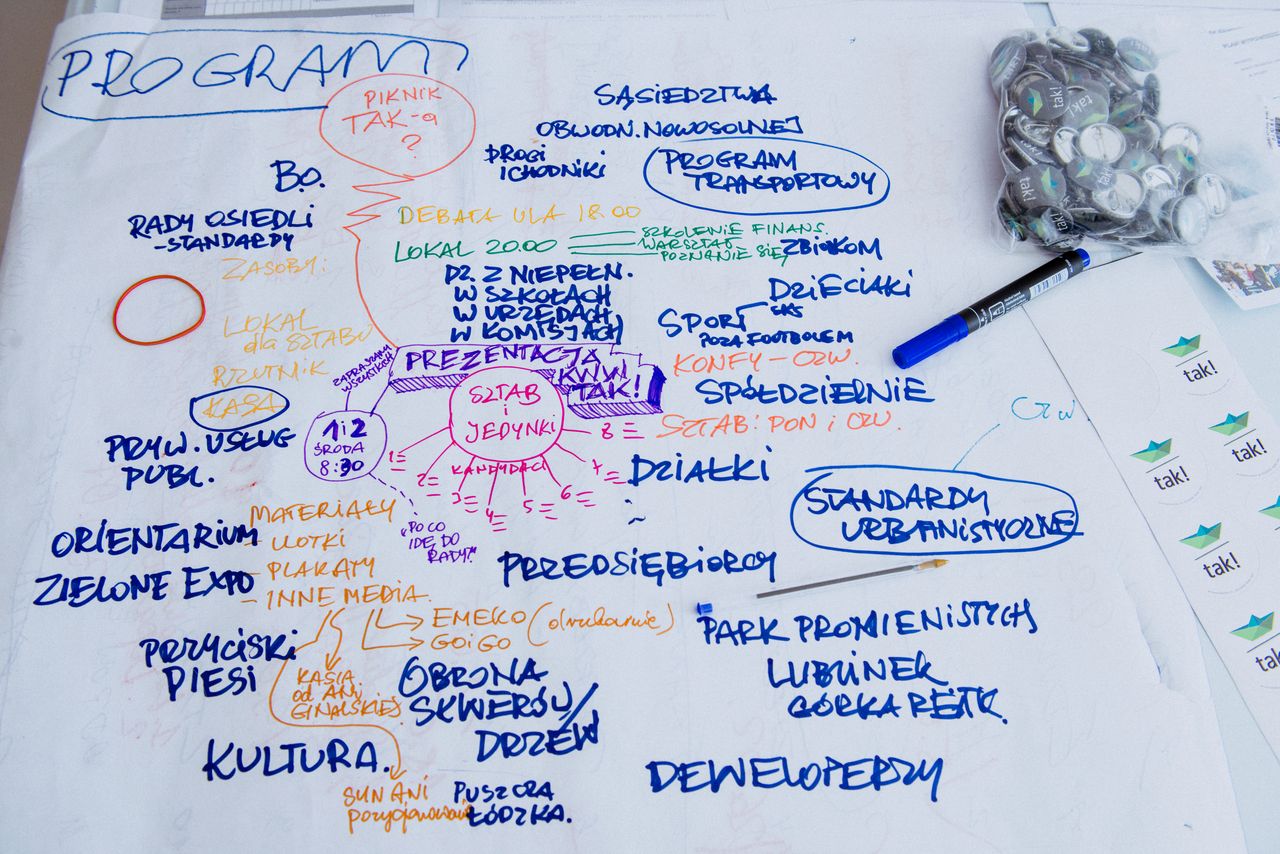 PROGRAM
PIKNIK
TAK-a
?
SĄSIEDZTWA
OBWODN. NOWOSOLNEJ
DROGI
I CHODNIKI
PROGRAM
TRANSPORTOWY
B.O.
RADY OSIEDLI
-STANDARDY
ZASOBY:
LOKAL
dla SZTABU
RZUTNIK
KASA
DEBATA ULA 18.00
LOKAL 20.00
SZKOLENIE FINANS.
WARSZTAT
POZNANIE SIĘ
ZBIORKOM
DZ. Z NIEPEŁN.
W SZKOŁACH
W URZĘDACH
W KOMISJACH
DZIECIAKI
SKS
SPORT
POZA FOOTBOLEM
KONFY - CZW.
SPÓŁDZIELNIE
SZTAB: PON i CZW.
ZAPRASZAMY
WSZYSTKICH
PREZENTACJA
KWW
TAK!
SZTAB
i
JEDYNKI
KANDYDACI
1
2
3
4
5
6
7
8
1 i 2
ŚRODA
8:30
"PO CO
IDĘ DO
RADY?"
PRYW. USŁUG
PUBL.
DZIAŁKI
CZW
STANDARDY
URBANISTYCZNE
MATERIAŁY
- ULOTKI
- PLAKATY
- INNE MEDIA.
ORIENTARIUM
ZIELONE EXPO
PRZEDSIĘBIORCY
EMEKO (drukarnie)
GOiGO
PRZYCISKI
PIESI
KASIA
od ANI
GINALSKIEJ
OBRONA
SKWERÓW/
DRZEW
PARK PROMIENISTYCH
LUBLINEK
GÓRKA RETK.
KULTURA.
SUN ANI
pozycjonowanie
PUSZCZA
ŁÓDZKA.
DEWELOPERZY
tak!
tak!
tak!
tak!
tak!
tak!
tak!
tak!
tak!
tak!